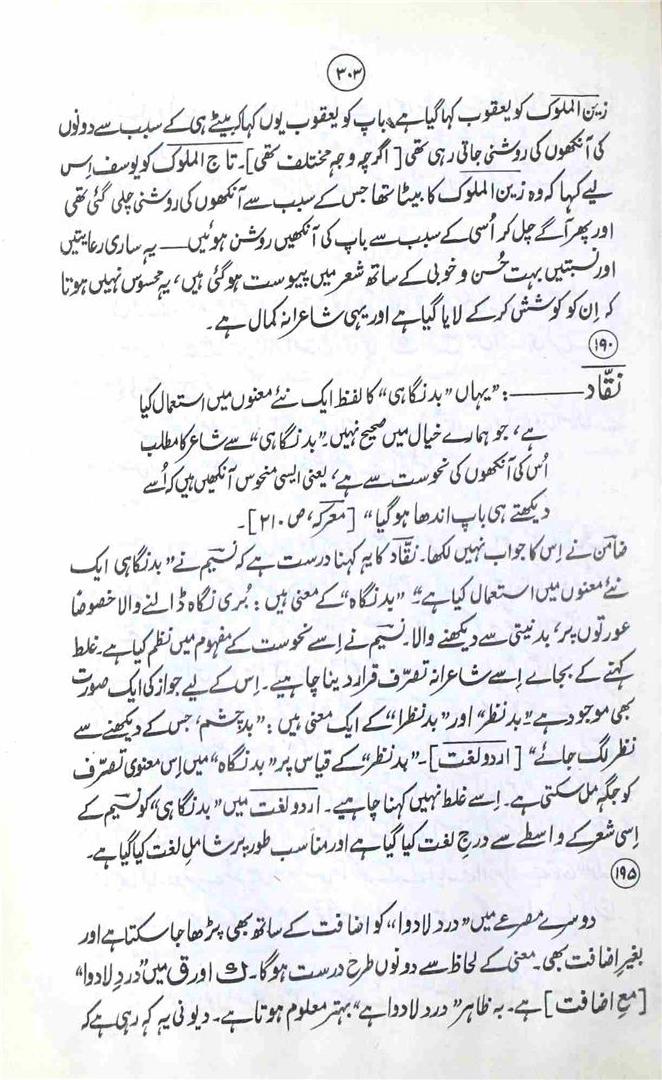 ۳۰۳
زین الملوک کو یعقوب کہا گیا ہے، باپ کو یعقوب یوں کہا کہ بیٹے ہی کے سبب سے دونوں
کی آنکھوں کی روشنی جاتی رہی تھی [اگرچہ وجہ مختلف تھی]۔ تاج الملوک کو یوسف اِس
لیے کہا کہ وہ زین الملوک کا بیٹا تھا جس کے سبب سے آنکھوں کی روشنی چلی گئی تھی
اور پھر آگے چل کر اُسی کے سبب سے باپ کی آنکھیں روشن ہوئیں — یہ ساری رعایتیں
اور نسبتیں بہت حُسن و خوبی کے ساتھ شعر میں پیوست ہو گئی ہیں، یہ محسوس نہیں ہوتا
کہ اِن کو کوشش کر کے لایا گیا ہے اور یہی شاعرانہ کمال ہے۔
۱۹۰
نقّاد ——— : ”یہاں ”بدنگاہی“ کا لفظ ایک نئے معنوں میں استعمال کیا
ہے، جو ہمارے خیال میں صحیح نہیں۔ ”بدنگاہی“ سے شاعر کا مطلب
اُس کی آنکھوں کی نحوست سے ہے، یعنی ایسی منحوس آنکھیں ہیں کہ اُسے
دیکھتے ہی باپ اندھا ہو گیا“ [معرکہ، ص ۲۱۰]۔
ضامن نے اِس کا جواب نہیں لکھا۔ نقّاد کا یہ کہنا درست ہے کہ نسیم نے ”بدنگاہی ایک
نئے معنوں میں استعمال کیا ہے“۔ ”بدنگاہ“ کے معنی ہیں : بُری نگاہ ڈالنے والا خصوصاً
عورتوں پر، بدنیتی سے دیکھنے والا۔ نسیم نے اِسے نحوست کے مفہوم میں نظم کیا ہے۔ غلط
کہنے کے بجاے اِسے شاعرانہ تصرّف قرار دینا چاہیے۔ اِس کے لیے جواز کی ایک صورت
بھی موجود ہے۔ ”بدنظر“ اور ”بدنظرا“ کے ایک معنی ہیں : ”بدچشم، جس کے دیکھنے سے
نظر لگ جائے“ [اردو لغت]۔ ”بدنظر“ کے قیاس پر ”بدنگاہ“ میں اِس معنوی تصرّف
کو جگہ مل سکتی ہے۔ اِسے غلط نہیں کہنا چاہیے۔ اردو لغت میں ”بدنگاہی“ کو نسیم کے
اِسی شعر کے واسطے سے درجِ لغت کیا گیا ہے اور مناسب طور پر شاملِ لغت کیا گیا ہے۔
۱۹۵
دوسرے مصرعے میں ”درد لادوا“ کو اضافت کے ساتھ بھی پڑھا جا سکتا ہے اور
بغیرِ اضافت بھی۔ معنی کے لحاظ سے دونوں طرح درست ہوگا۔ ک اور ق میں ”دردِ لادوا“
[مع اضافت] ہے۔ بہ ظاہر ”درد لادوا ہے“ بہتر معلوم ہوتا ہے۔ دیونی یہ کہہ رہی ہے کہ